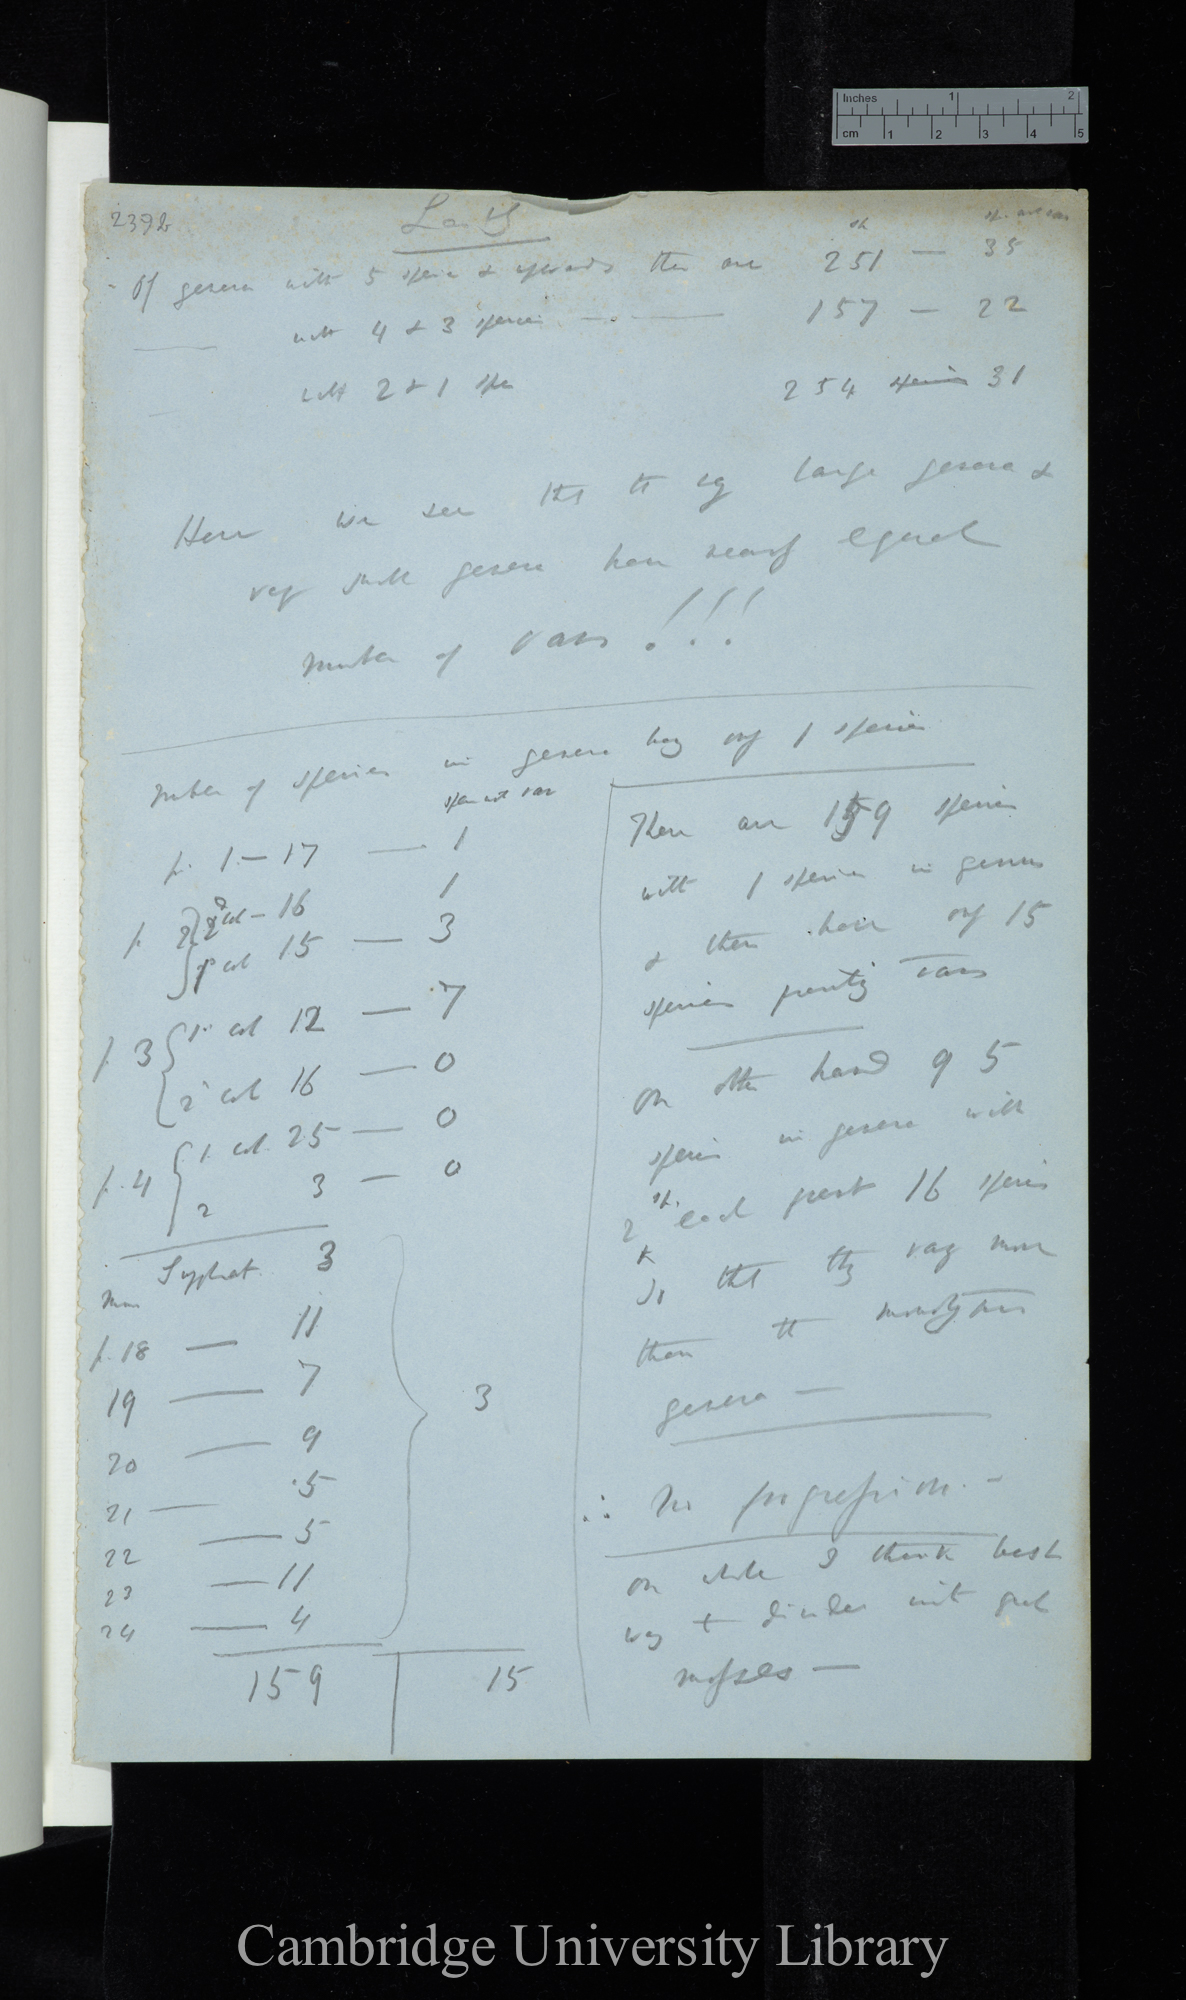 Inches 1 2
cm 1 2 3 4 5
239 b
sp.
Of genera with 5 species & upwards there are 251 — 35
with 4 & 3 species — 157 — 22
with 2 & 1 spe 254 species 31
Here we see tht th large genera &
very small genera have nearly equal
number of vars!!!
Number of species in genera hvg only 1 species
spe wit var
p. 1 — 17 — 1
p. 2 2d col — 16 1
1st col 15 — 3
p. 3 1st col 12 — 7
2d col 16 — 0
p. 4 1 col. 25 — 0
2 3 — 0
3
p. 18 — 11
19 — 7
20 — 9
21 — 5
22 — 5
23 — 11
24 — 4
3
159 15
There are 159 species
with 1 species in genus
& these have only 15
species presentg vars
On other hand 95
species in genera with
2 sp. each present 16 species
So tht thy vary more
than th
genera —
∴ No progression. —
On whole I think best
way to divide into great
masses —
Cambridge University Library